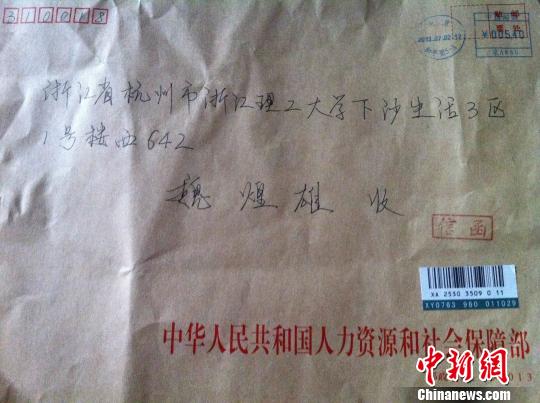 310018
2013.07.02.12
¥00540
浙江省杭州市浙江理工大学下沙生活3区
1号楼西642
魏煌雄 收
信函
XA 2550 3509 0 11
XY0763 980 011029
中华人民共和国人力资源和社会保障部
中新网
Chinanews.com